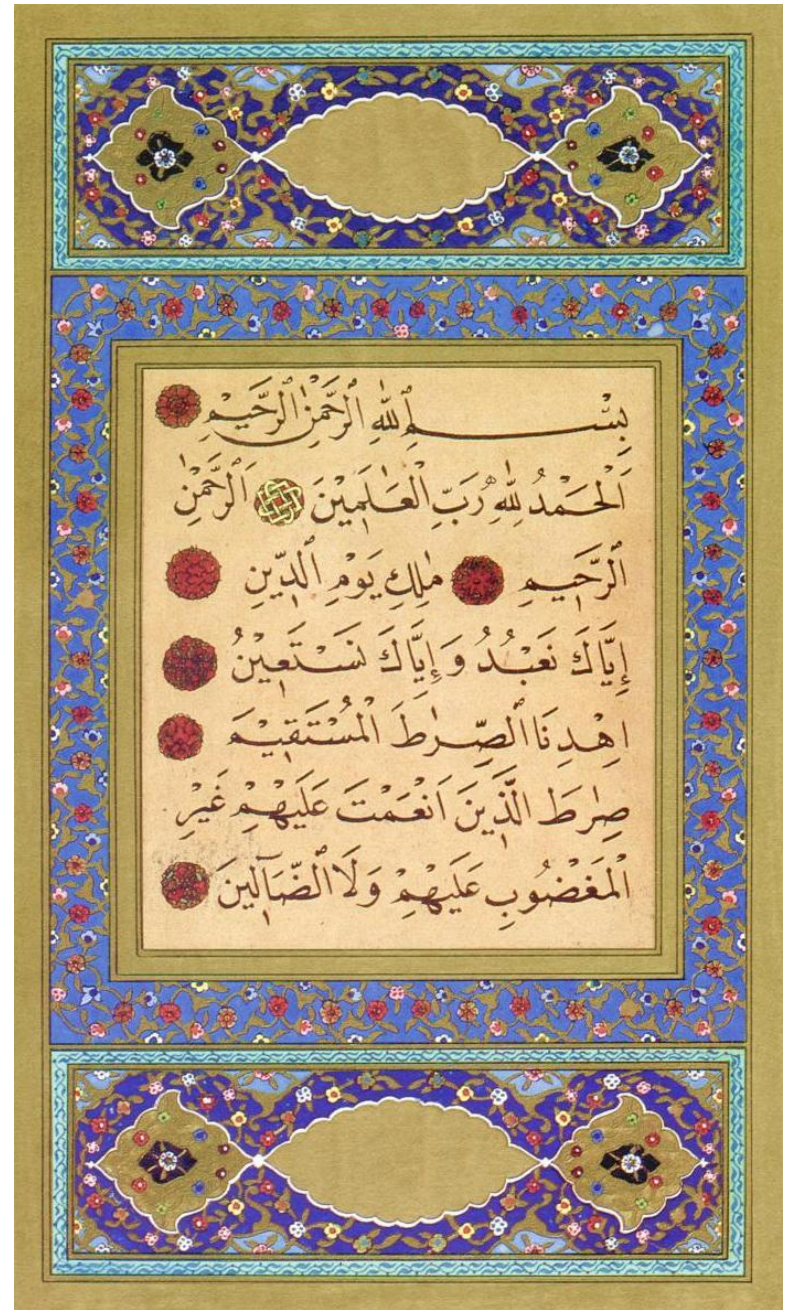 بِسْمِ ٱللّٰهِ ٱلرَّحْمٰنِ ٱلرَّحٖيمِ
اَلْحَمْدُ لِلّٰهِ رَبِّ الْعَالَمٖينَ اَلرَّحْمٰنِ
ٱلرَّحٖيمِ مٰلِكِ يَوْمِ ٱلدّٖينِ
إِيَّاكَ نَعْبُدُ وَإِيَّاكَ نَسْتَعٖينُ
اِهْدِنَا ٱلصِّرٰطَ الْمُسْتَقٖيمَ
صِرٰطَ الَّذٖينَ اَنْعَمْتَ عَلَيْهِمْ غَيْرِ
الْمَغْضُوبِ عَلَيْهِمْ وَلَا ٱلضَّآلّٖينَ